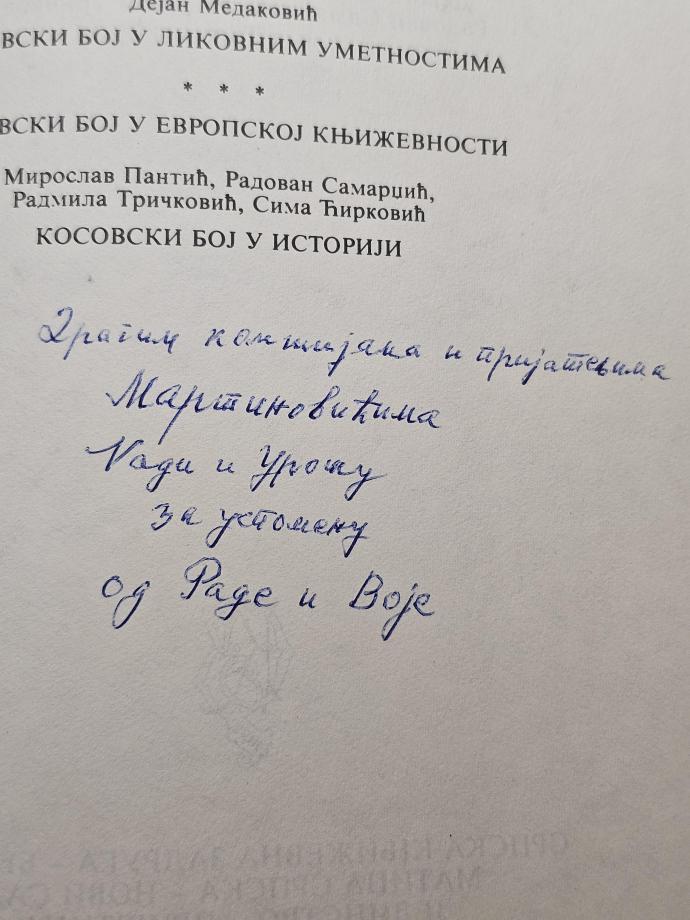 Дејан Медаковић
ВСКИ БОЈ У ЛИКОВНИМ УМЕТНОСТИМА
* * *
ВСКИ БОЈ У ЕВРОПСКОЈ КЊИЖЕВНОСТИ
Мирослав Пантић, Радован Самарџић,
Радмила Тричковић, Сима Ћирковић
КОСОВСКИ БОЈ У ИСТОРИЈИ
Драгим комшијама и пријатељима
Мартиновићима
и Урошу
за успомену
од Раде и Воје
СРПСКА КЊИЖЕВНА ЗАДРУГА – БЕ
МАТИЦА СРПСКА – НОВИ СА